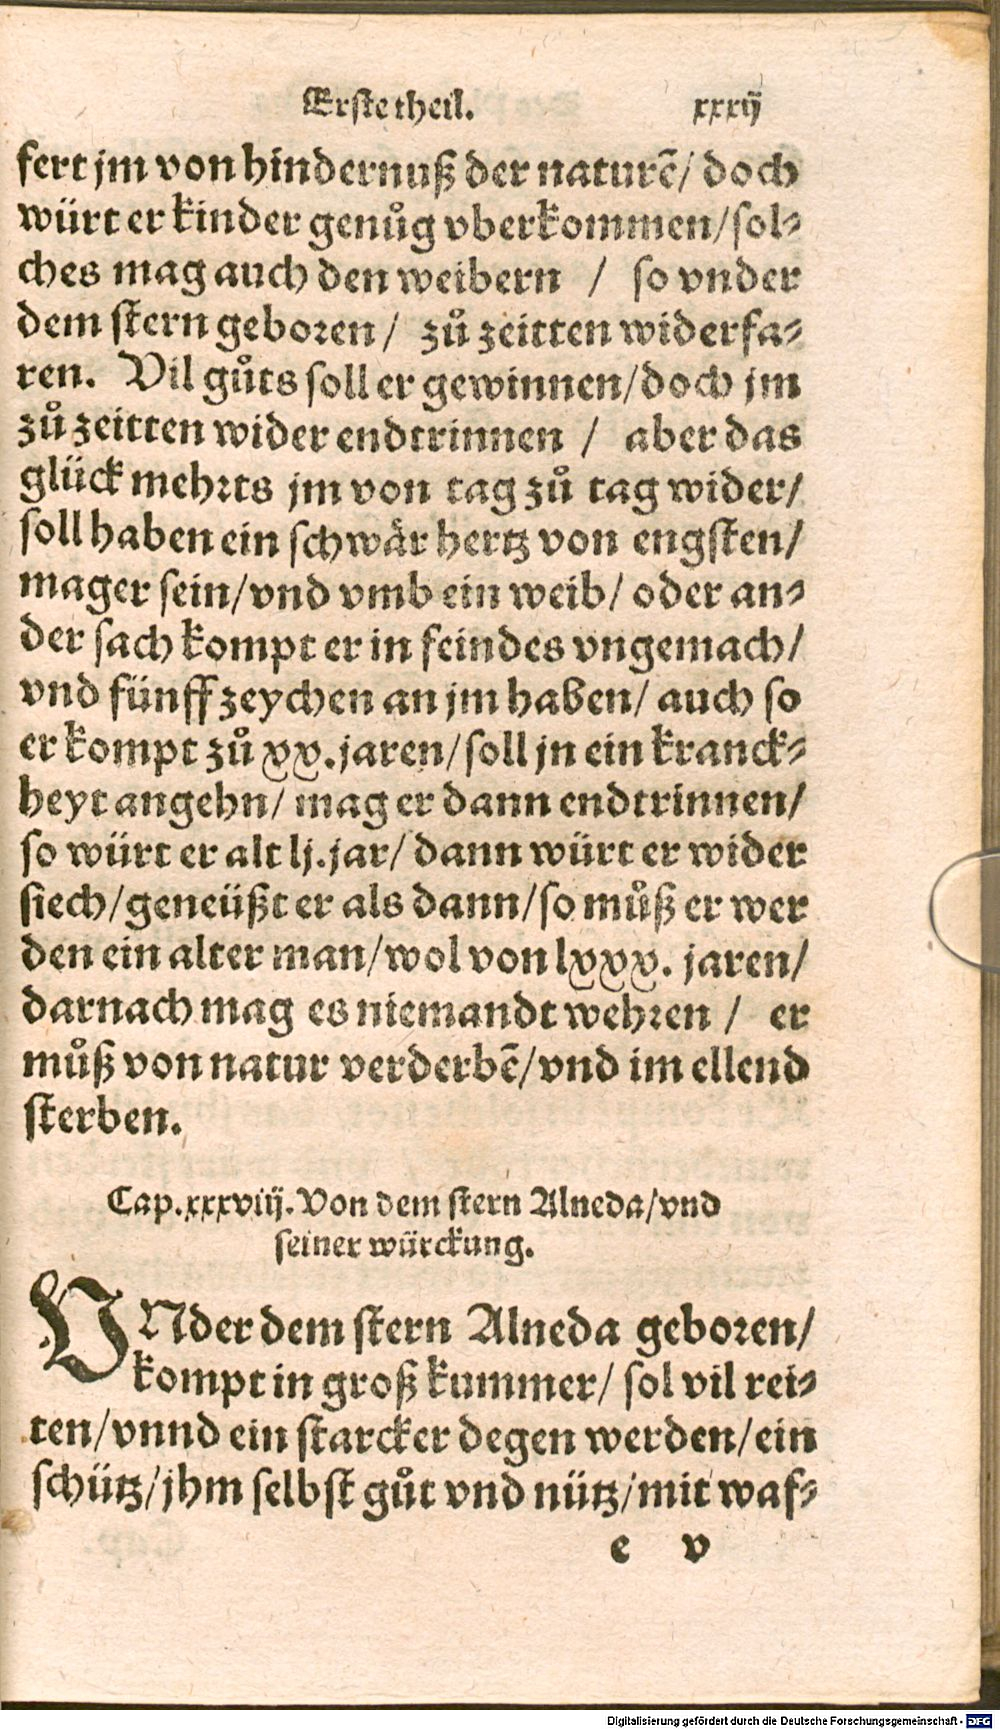 Erste theil. xxxij
fert jm von hindernuß der naturē/ doch
würt er kinder genůg vberkommen/sol-
ches mag auch den weibern / so vnder
dem stern geboren/ zů zeitten widerfa-
ren. Vil gůts soll er gewinnen/doch jm
zů zeitten wider endtrinnen / aber das
glück mehrts jm von tag zů tag wider/
soll haben ein schwär hertz von engsten/
mager sein/vnd vmb ein weib/ oder an-
der sach kompt er in feindes vngemach/
vnd fünff zeychen an jm haben/ auch so
er kompt zů xx. jaren/soll jn ein kranck-
heyt angehn/ mag er dann endtrinnen/
so würt er alt lj. jar/ dann würt er wider
siech/geneüßt er als dann/so můß er wer
den ein alter man/wol von lxxx. jaren/
darnach mag es niemandt wehren / er
můß von natur verderbē/vnd im ellend
sterben.
Cap. xxxviij. Von dem stern Alneda/vnd
seiner würckung.
VNder dem stern Alneda geboren/
kompt in groß kummer/ sol vil rei-
ten/vnnd ein starcker degen werden/ein
schütz/jhm selbst gůt vnd nütz/mit waf-
e v
Digitalisierung gefördert durch die Deutsche Forschungsgemeinschaft - DFG